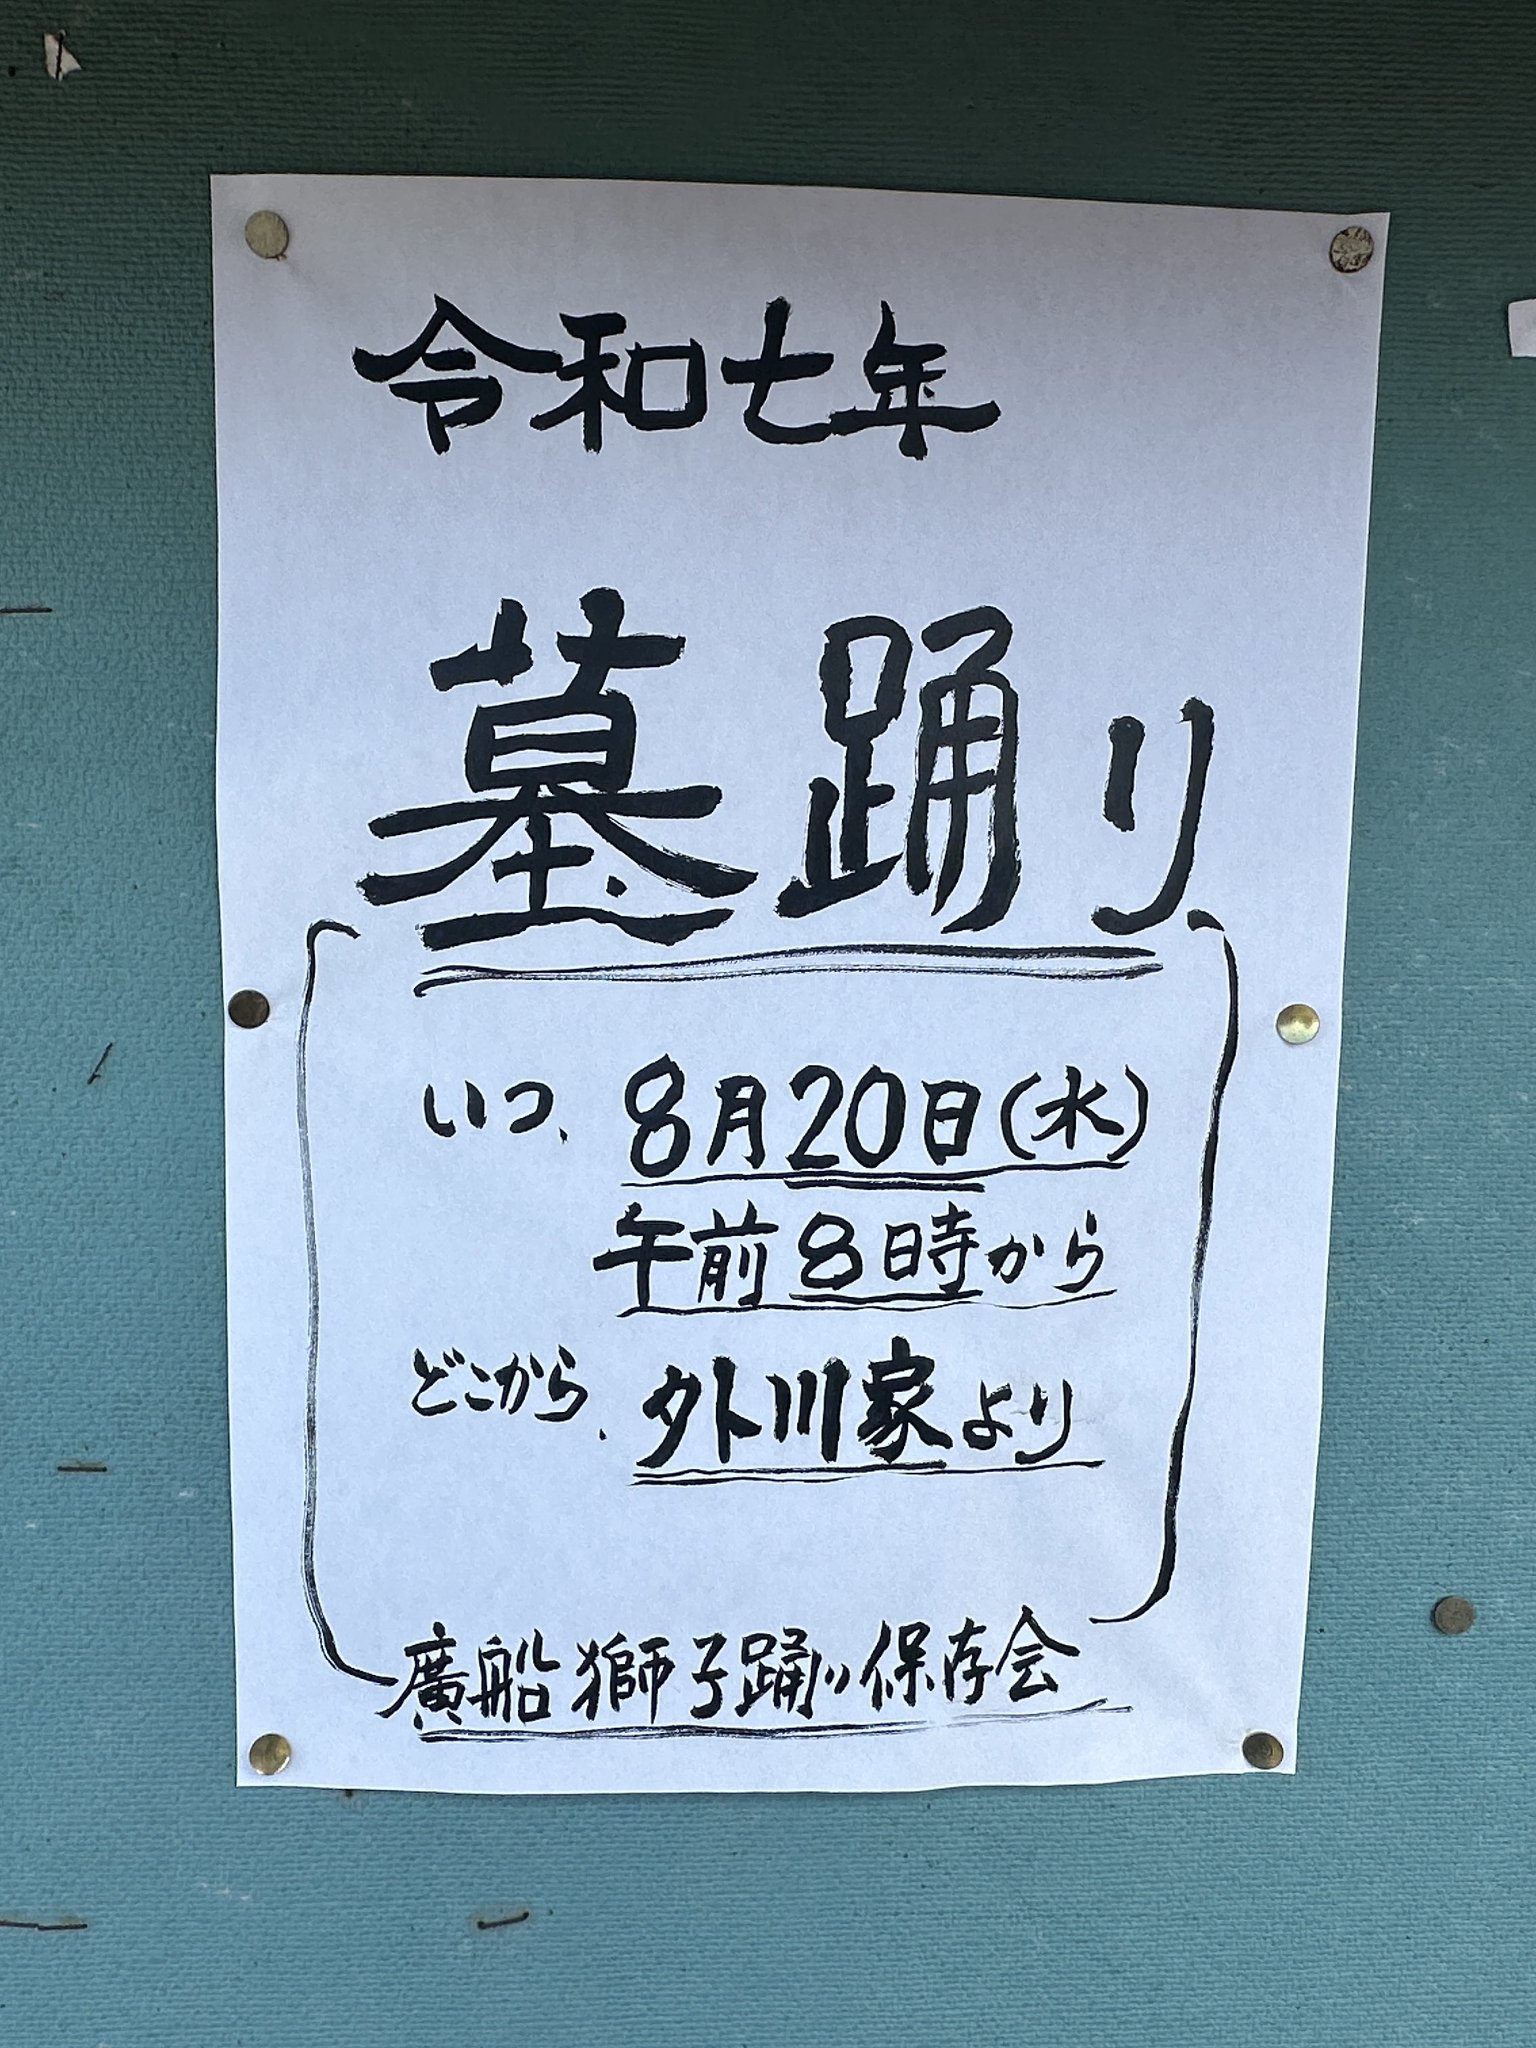 令和七年
墓踊り
いつ、8月20日(水)
午前8時から
どこから、外川家より
廣船獅子踊り保存会